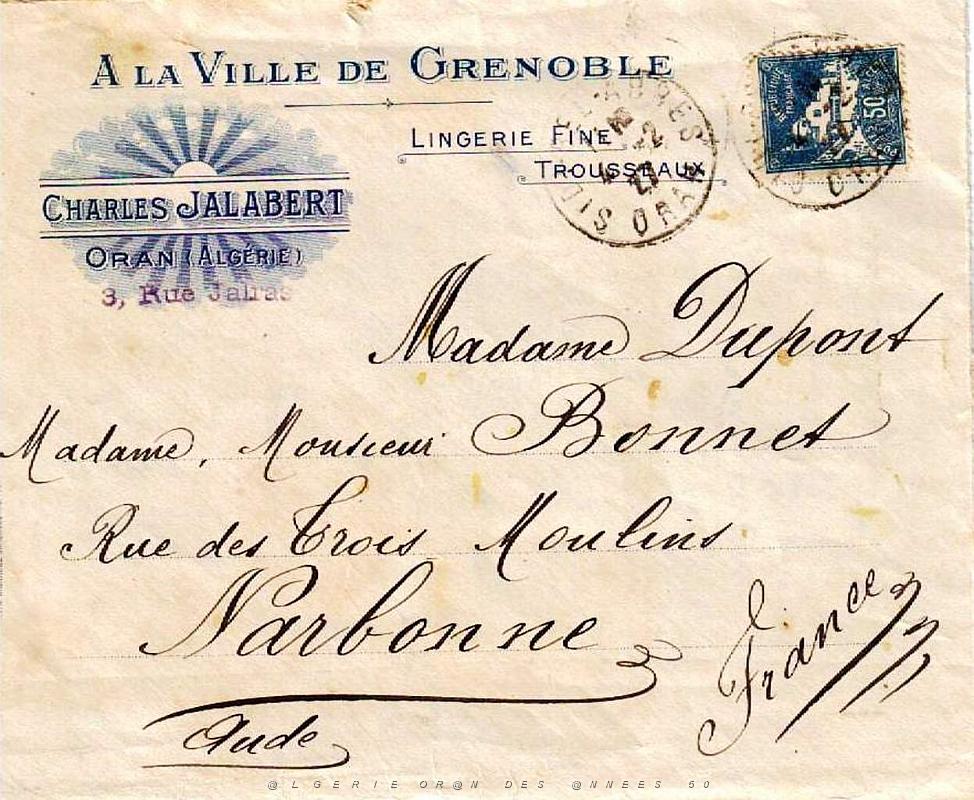 A LA VILLE DE GRENOBLE
LINGERIE FINE
TROUSSEAUX
CHARLES JALABERT
ORAN (ALGÉRIE)
3, Rue Jalras
SIDI BEL ABBES
ORAN
50
Madame Dupont
Madame, Monsieur Bonnet
Rue des Trois Moulins
Narbonne
Aude
France
@LGERIE OR@N DES @NNEES 50